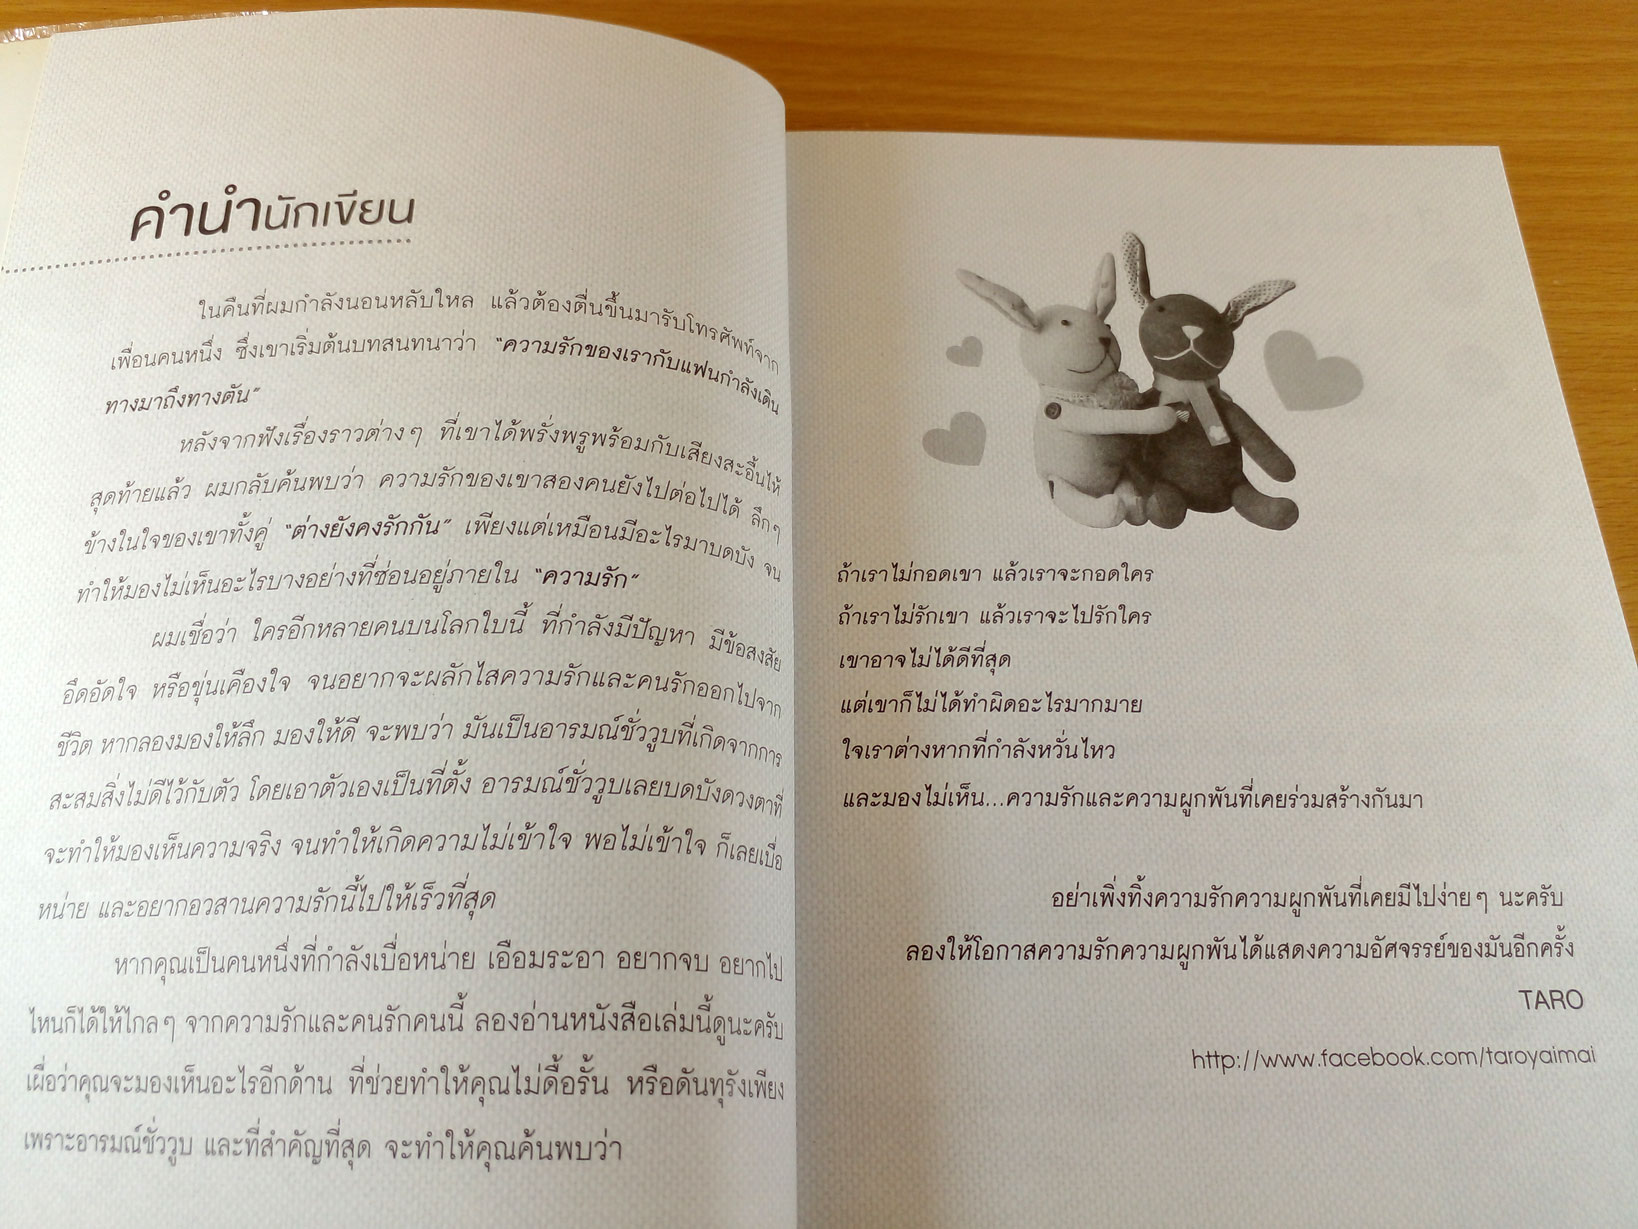 คำนำนักเขียน
ในคืนที่ผมกำลังนอนหลับใหล แล้วต้องตื่นขึ้นมารับโทรศัพท์จาก
เพื่อนคนหนึ่ง ซึ่งเขาเริ่มต้นบทสนทนาว่า “ความรักของเรากับแฟนกำลังเดิน
ทางมาถึงทางตัน”
หลังจากฟังเรื่องราวต่างๆ ที่เขาได้พรั่งพรูพร้อมกับเสียงสะอื้นไห้
สุดท้ายแล้ว ผมกลับค้นพบว่า ความรักของเขาสองคนยังไปต่อไปได้ ลึกๆ
ข้างในใจของเขาทั้งคู่ “ต่างยังคงรักกัน” เพียงแต่เหมือนมีอะไรมาบดบัง จน
ทำให้มองไม่เห็นอะไรบางอย่างที่ซ่อนอยู่ภายใน “ความรัก”
ผมเชื่อว่า ใครอีกหลายคนบนโลกใบนี้ ที่กำลังมีปัญหา มีข้อสงสัย
อึดอัดใจ หรือขุ่นเคืองใจ จนอยากจะผลักไสความรักและคนรักออกไปจาก
ชีวิต หากลองมองให้ลึก มองให้ดี จะพบว่า มันเป็นอารมณ์ชั่ววูบที่เกิดจากการ
สะสมสิ่งไม่ดีไว้กับตัว โดยเอาตัวเองเป็นที่ตั้ง อารมณ์ชั่ววูบเลยบดบังดวงตาที่
จะทำให้มองเห็นความจริง จนทำให้เกิดความไม่เข้าใจ พอไม่เข้าใจ ก็เลยเบื่อ
หน่าย และอยากอวสานความรักนี้ไปให้เร็วที่สุด
หากคุณเป็นคนหนึ่งที่กำลังเบื่อหน่าย เอือมระอา อยากจบ อยากไป
ไหนก็ได้ให้ไกลๆ จากความรักและคนรักคนนี้ ลองอ่านหนังสือเล่มนี้ดูนะครับ
เผื่อว่าคุณจะมองเห็นอะไรอีกด้าน ที่ช่วยทำให้คุณไม่ดื้อรั้น หรือดันทุรังเพียง
เพราะอารมณ์ชั่ววูบ และที่สำคัญที่สุด จะทำให้คุณค้นพบว่า
ถ้าเราไม่กอดเขา แล้วเราจะกอดใคร
ถ้าเราไม่รักเขา แล้วเราจะไปรักใคร
เขาอาจไม่ได้ดีที่สุด
แต่เขาก็ไม่ได้ทำผิดอะไรมากมาย
ใจเราต่างหากที่กำลังหวั่นไหว
และมองไม่เห็น...ความรักและความผูกพันที่เคยร่วมสร้างกันมา
อย่าเพิ่งทิ้งความรักความผูกพันที่เคยมีไปง่ายๆ นะครับ
ลองให้โอกาสความรักความผูกพันได้แสดงความอัศจรรย์ของมันอีกครั้ง
TARO
http://www.facebook.com/taroyaimai